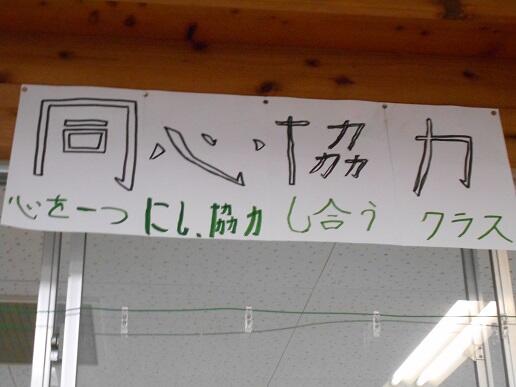 同心協力
心を一つにし、協力し合うクラス